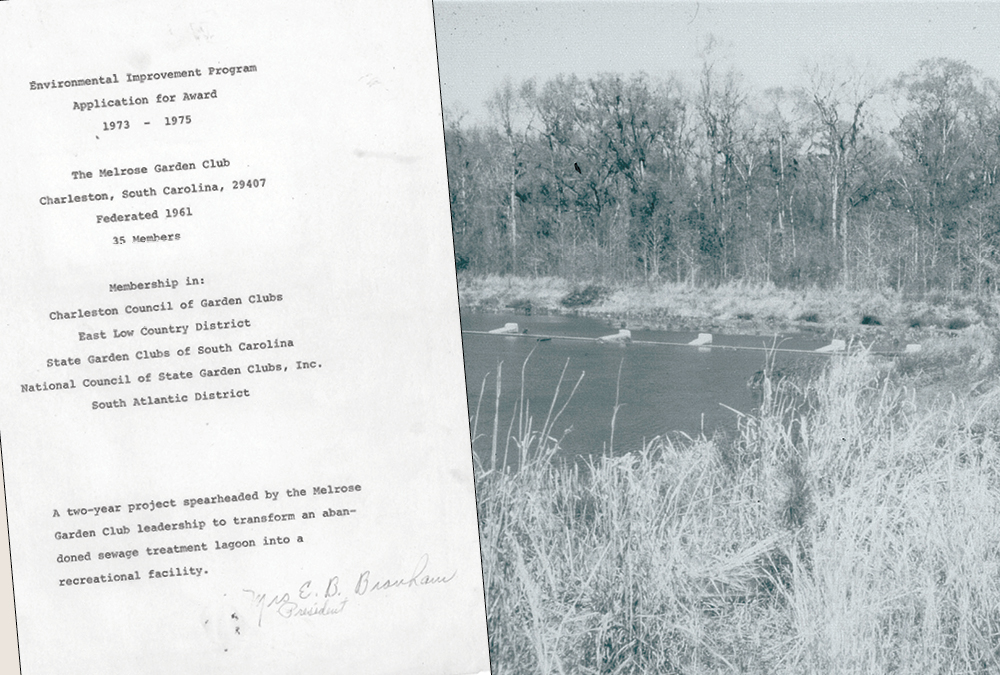 Environmental Improvement Program
Application for Award
1973 - 1975
The Melrose Garden Club
Charleston, South Carolina, 29407
Federated 1961
35 Members
Membership in:
Charleston Council of Garden Clubs
East Low Country District
State Garden Clubs of South Carolina
National Council of State Garden Clubs, Inc.
South Atlantic District
A two-year project spearheaded by the Melrose
Garden Club leadership to transform an aban-
doned sewage treatment lagoon into a
recreational facility.
Mrs E. B. Branham
President